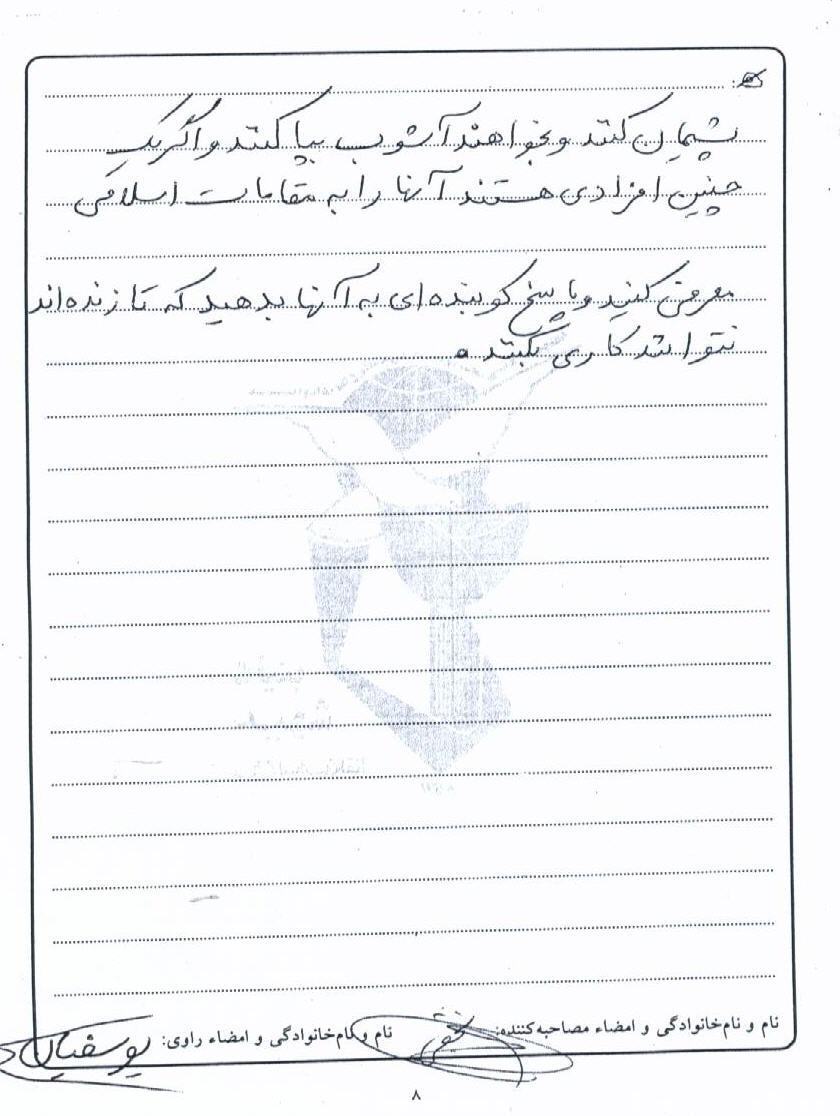 پشیمان کنند و بخواهند آشوب بپا کنند و اگر یک
چنین افرادی هستند آنها را به مقامات اسلامی
معرفی کنید و پاسخ کوبنده ای به آنها بدهید که تا زنده اند
نتوانند کاری بکنند.
نام و نام خانوادگی و امضاء مصاحبه کننده:
نام و نام خانوادگی و امضاء راوی: یوسفیان
۸